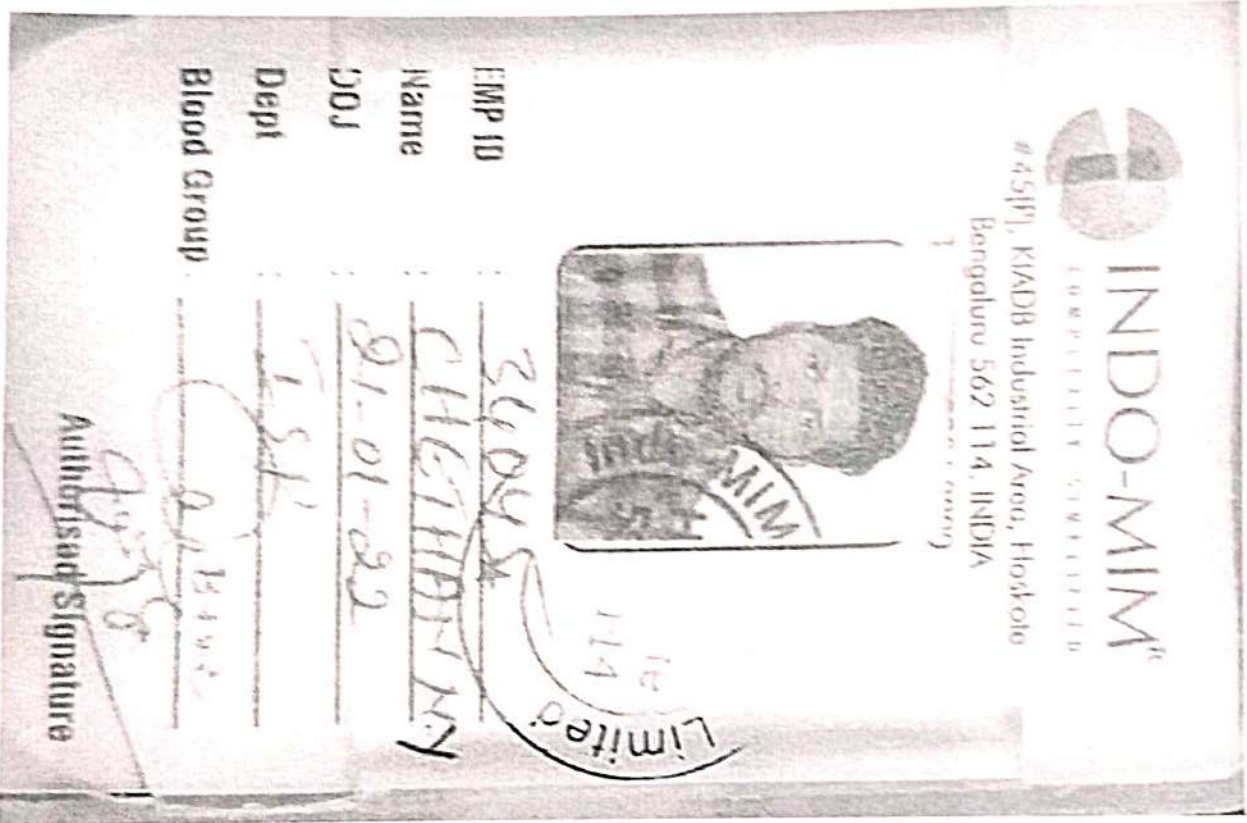 INDO-MIM®
COMPLEXITY SIMPLIFIED
#45(P), KIADB Industrial Area, Hoskote
Bengaluru 562 114. INDIA
Indo MIM
Limited
EMP ID : 34045
Name : CHETHAN N.Y
DOJ : 21-01-22
Dept :
Blood Group :
Authorised Signature